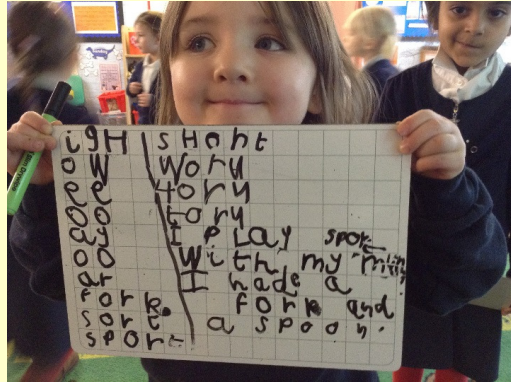 igH sHort
ow wory
ee tory
oo tory
ay I play spor
oo with my mum
ar I hade a
fork fork and
sort a spoon.
sport